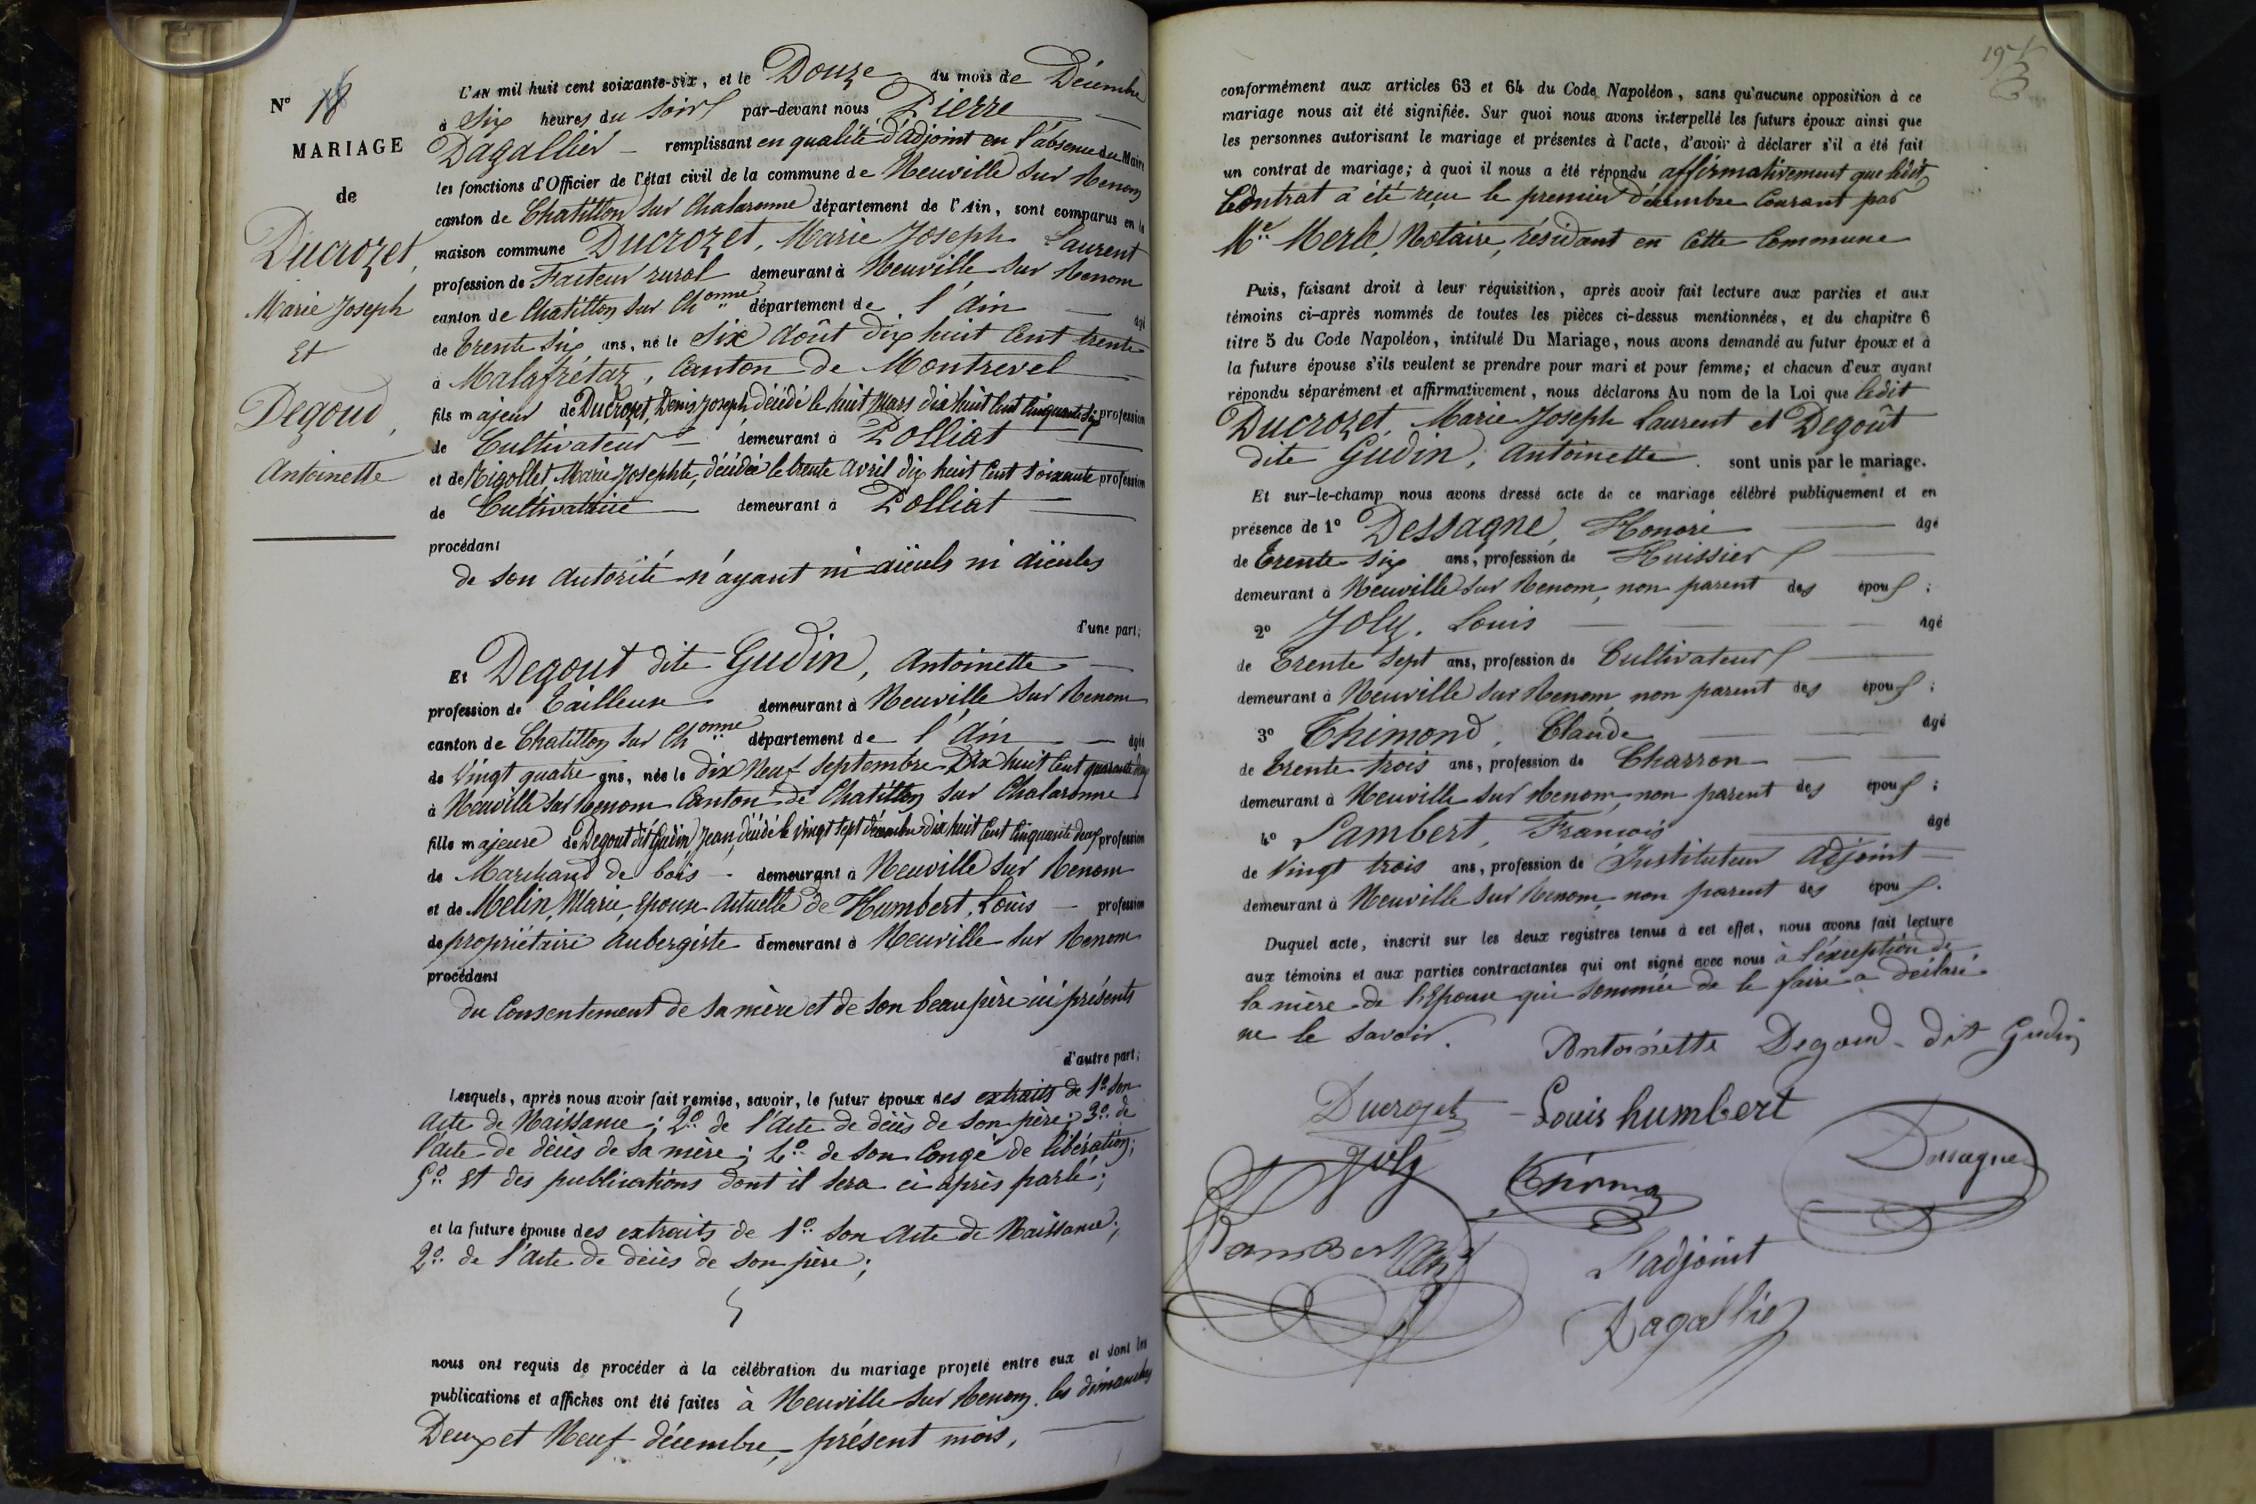 N° 18
MARIAGE
de
Ducrozet,
Marie Joseph
Et
Degoud,
Antoinette
L'AN mil huit cent soixante-six, et le Douze du mois de Décembre
à Six heures du Soir par-devant nous Pierre
Dagallier remplissant en qualité d'adjoint en l'absence du Maire
les fonctions d'Officier de l'état civil de la commune de Neuville sur Renom
canton de Chatillon sur Chalaronne département de l'Ain, sont comparus en la
maison commune Ducrozet, Marie Joseph Laurent
profession de Facteur rural demeurant à Neuville sur Renom
canton de Chatillon sur Chonne département de l'Ain âgé
de Trente Six ans, né le Six Août Dix huit Cent trente
à Malafrétaz, Canton de Montrevel
fils majeur de Ducrozet, Denis Joseph, décédé le huit Mars dix huit Cent Cinquante six profession
de Cultivateur demeurant à Polliat
et de Rigollet Marie Josephte, décédée le trente Avril dix huit Cent soixante profession
de Cultivatrice demeurant à Polliat
procédant
de son autorité n'ayant ni aïeuls ni aïeules
d'une part;
Et Degout dite Gudin, Antoinette
profession de Tailleuse demeurant à Neuville sur Renom
canton de Chatillon sur Chonne département de l'Ain âgée
de Vingt quatre ans, née le dix Neuf Septembre Dix huit Cent quarante deux
à Neuville sur Renom Canton de Chatillon sur Chalaronne
fille majeure de Degout dit Gudin, Jean, décédé le vingt sept décembre dix huit Cent Cinquante deux profession
de Marchand de bois demeurant à Neuville sur Renom
et de Melin, Marie, Epouse Actuelle de Humbert, Louis profession
de propriétaire Aubergiste demeurant à Neuville sur Renom
procédant
du Consentement de sa mère et de son beau père ici présents
d'autre part;
Lesquels, après nous avoir fait remise, savoir, le futur époux des extraits de 1° Son
Acte de Naissance; 2° de l'Acte de décès de son père; 3° de
l'acte de décès de sa mère; 4° de son Congé de libération;
5° Et des publications dont il sera ci après parlé;
et la future épouse des extraits de 1° son Acte de Naissance;
2° de l'Acte de décès de son père;
nous ont requis de procéder à la célébration du mariage projeté entre eux et dont les
publications et affiches ont été faites à Neuville sur Renom, les dimanches
Deux et Neuf décembre, présent mois,
conformément aux articles 63 et 64 du Code Napoléon, sans qu'aucune opposition à ce
mariage nous ait été signifiée. Sur quoi nous avons interpellé les futurs époux ainsi que
les personnes autorisant le mariage et présentes à l'acte, d'avoir à déclarer s'il a été fait
un contrat de mariage; à quoi il nous a été répondu affirmativement que ledit
Contrat a été reçu le premier décembre Courant par
Me Merle, Notaire, résidant en Cette Commune
Puis, faisant droit à leur réquisition, après avoir fait lecture aux parties et aux
témoins ci-après nommés de toutes les pièces ci-dessus mentionnées, et du chapitre 6
titre 5 du Code Napoléon, intitulé Du Mariage, nous avons demandé au futur époux et à
la future épouse s'ils veulent se prendre pour mari et pour femme; et chacun d'eux ayant
répondu séparément et affirmativement, nous déclarons Au nom de la Loi que ledit
Ducrozet, Marie Joseph Laurent et Degoût
dite Gudin, Antoinette. sont unis par le mariage.
Et sur-le-champ nous avons dressé acte de ce mariage célébré publiquement et en
présence de 1° Dessagne, Honoré âgé
de Trente Six ans, profession de Huissier
demeurant à Neuville sur Renom, non parent des époux;
2° Joly, Louis âgé
de Trente Sept ans, profession de Cultivateur
demeurant à Neuville sur Renom, non parent des époux;
3° Thimond, Claude âgé
de Trente trois ans, profession de Charron
demeurant à Neuville sur Renom, non parent des époux;
4° Lambert, François âgé
de Vingt trois ans, profession de Instituteur Adjoint
demeurant à Neuville sur Renom, non parent des époux.
Duquel acte, inscrit sur les deux registres tenus à cet effet, nous avons fait lecture
aux témoins et aux parties contractantes qui ont signé avec nous à l'exception de
la mère de l'Epouse qui sommée de le faire a déclaré
ne le savoir.
Antoinette Degoud dit Gudin
Ducrozet Louis humbert
Joly Thimon Dessagne
Lambert
L'adjoint
Dagallier